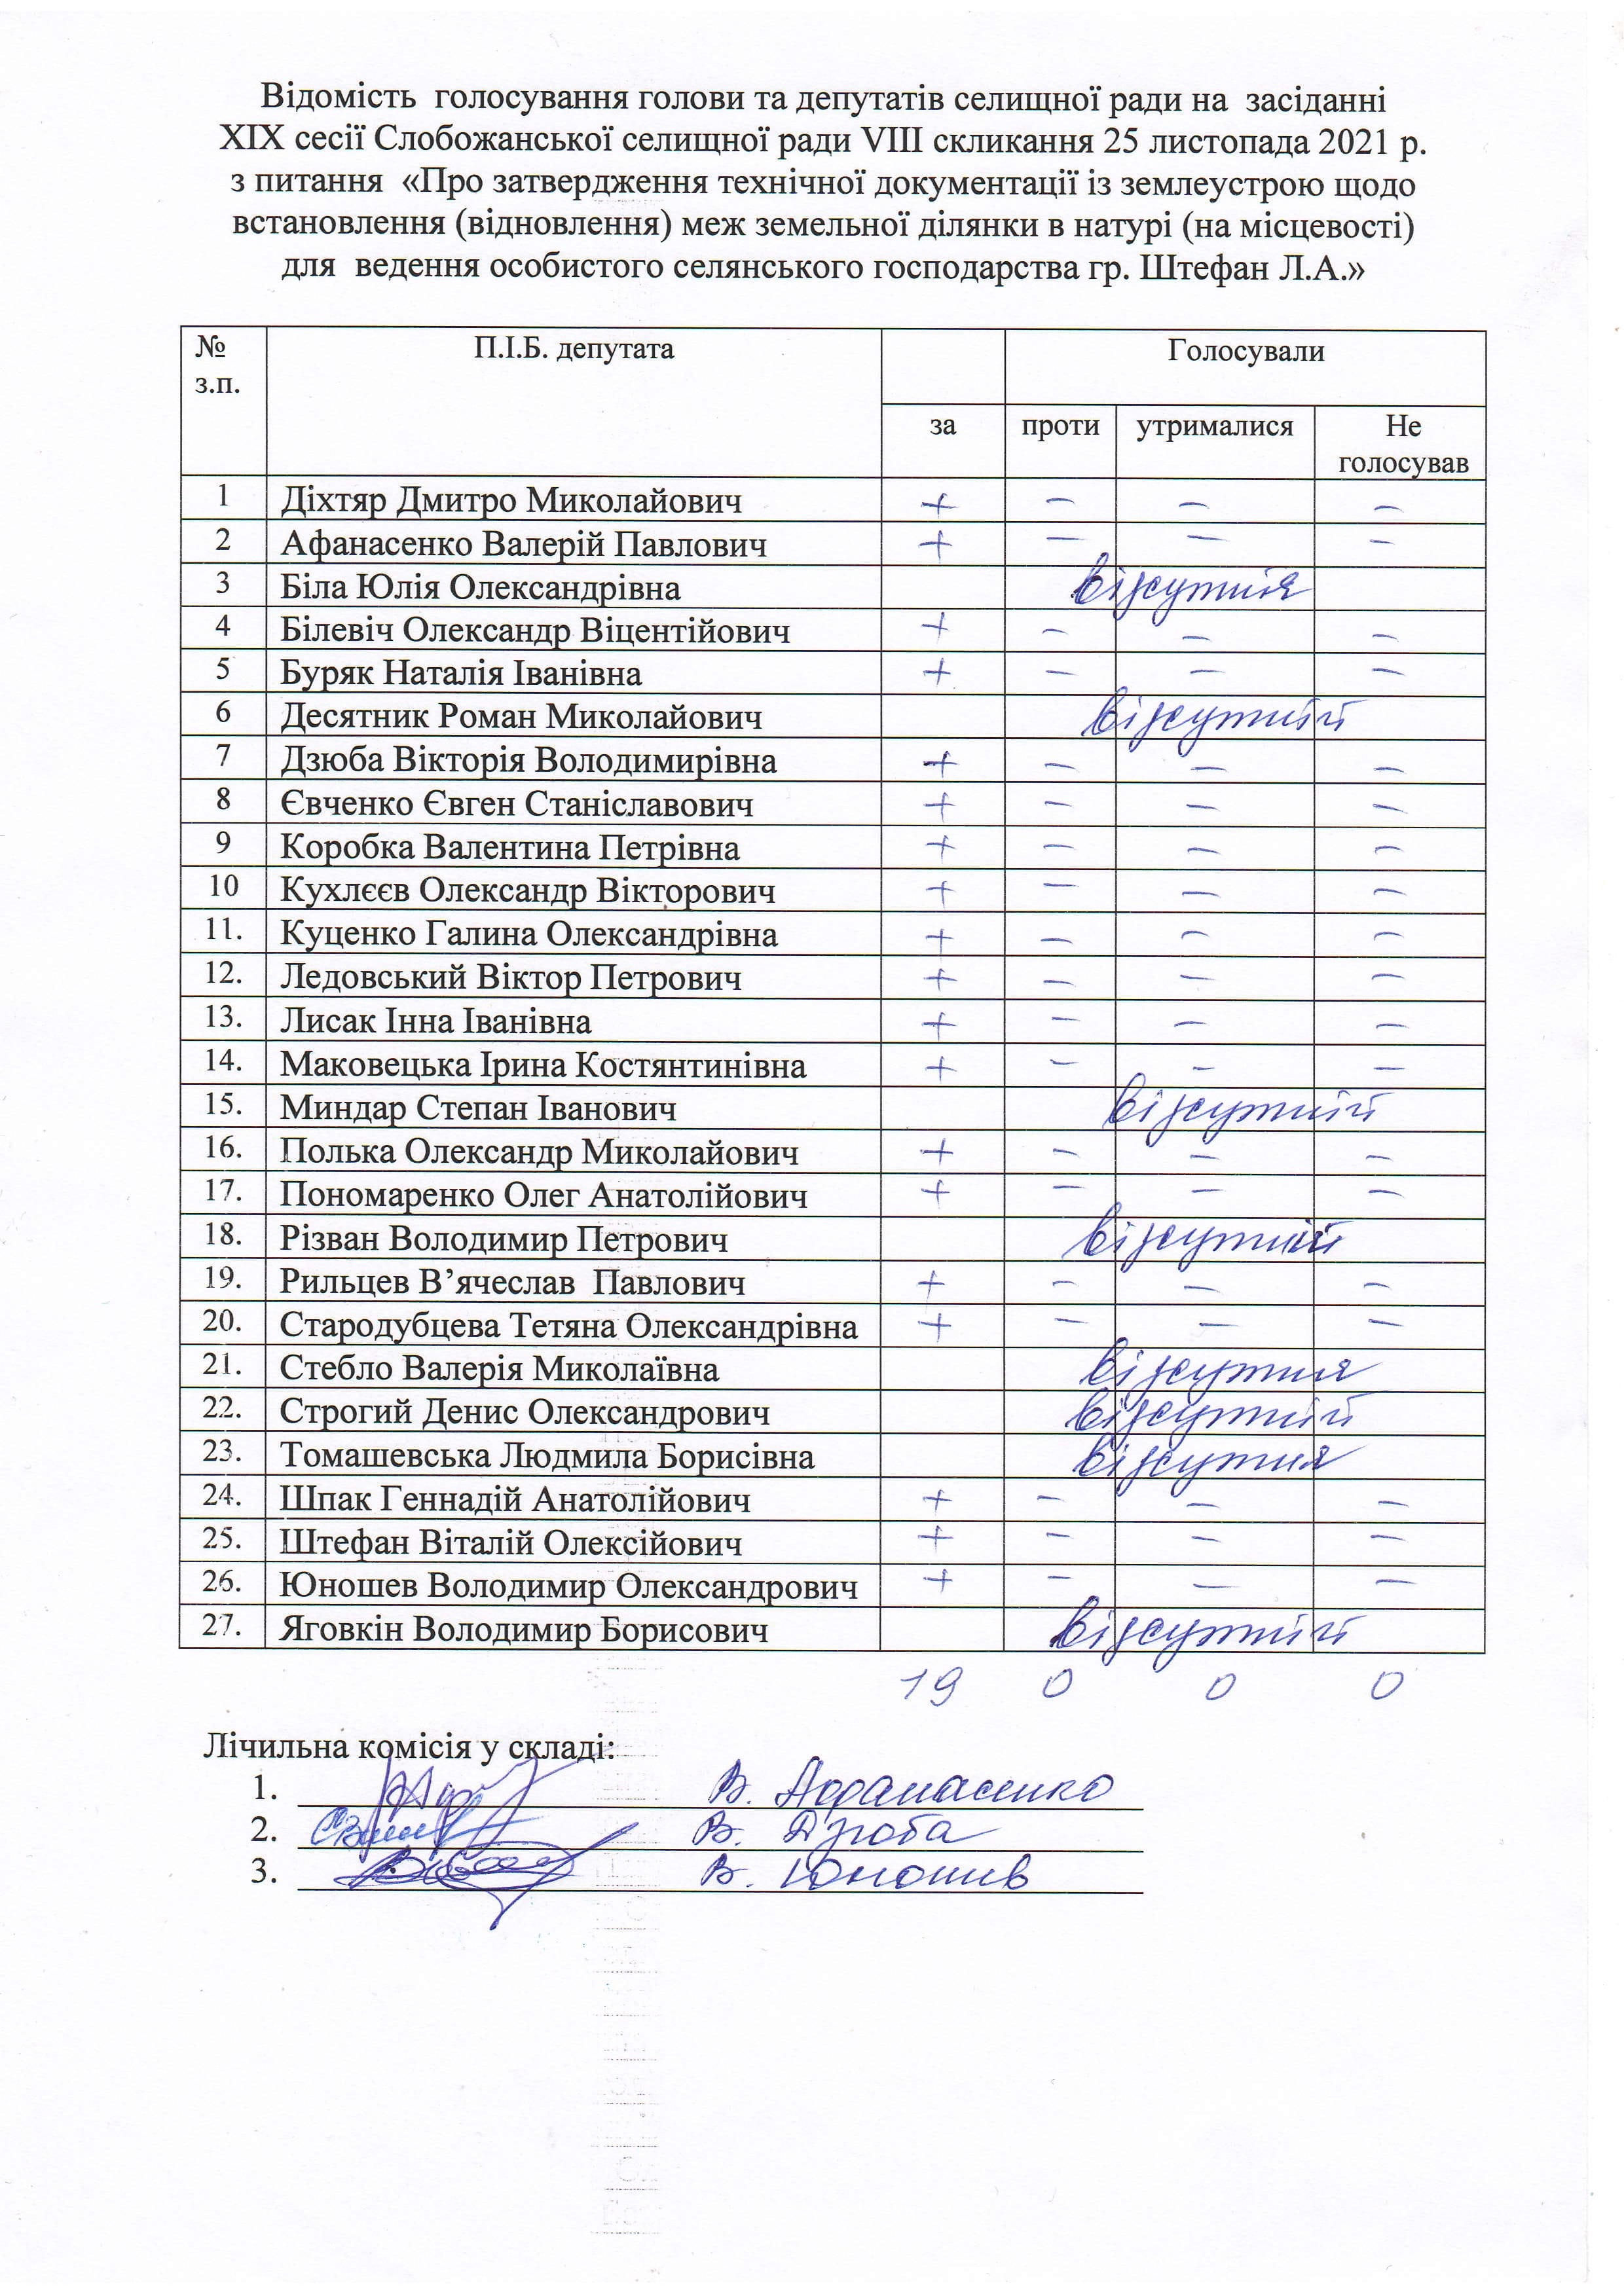 Відомість голосування голови та депутатів селищної ради на засіданні
XIX сесії Слобожанської селищної ради VIII скликання 25 листопада 2021 р.
з питання «Про затвердження технічної документації із землеустрою щодо
встановлення (відновлення) меж земельної ділянки в натурі (на місцевості)
для ведення особистого селянського господарства гр. Штефан Л.А.»
№ П.І.Б. депутата Голосували
з.п.
за проти утрималися Не
голосував
1 Діхтяр Дмитро Миколайович + – – –
2 Афанасенко Валерій Павлович + – – –
3 Біла Юлія Олександрівна відсутня
4 Білевіч Олександр Віцентійович + – – –
5 Буряк Наталія Іванівна + – – –
6 Десятник Роман Миколайович відсутній
7 Дзюба Вікторія Володимирівна + – – –
8 Євченко Євген Станіславович + – – –
9 Коробка Валентина Петрівна + – – –
10 Кухлєєв Олександр Вікторович + – – –
11. Куценко Галина Олександрівна + – – –
12. Ледовський Віктор Петрович + – – –
13. Лисак Інна Іванівна + – – –
14. Маковецька Ірина Костянтинівна + – – –
15. Миндар Степан Іванович відсутній
16. Полька Олександр Миколайович + – – –
17. Пономаренко Олег Анатолійович + – – –
18. Різван Володимир Петрович відсутній
19. Рильцев В’ячеслав Павлович + – – –
20. Стародубцева Тетяна Олександрівна + – – –
21. Стебло Валерія Миколаївна відсутня
22. Строгий Денис Олександрович відсутній
23. Томашевська Людмила Борисівна відсутня
24. Шпак Геннадій Анатолійович + – – –
25. Штефан Віталій Олексійович + – – –
26. Юношев Володимир Олександрович + – – –
27. Яговкін Володимир Борисович відсутній
19 0 0 0
Лічильна комісія у складі:
1. В. Афанасенко
2. В. Дзюба
3. В. Юношев